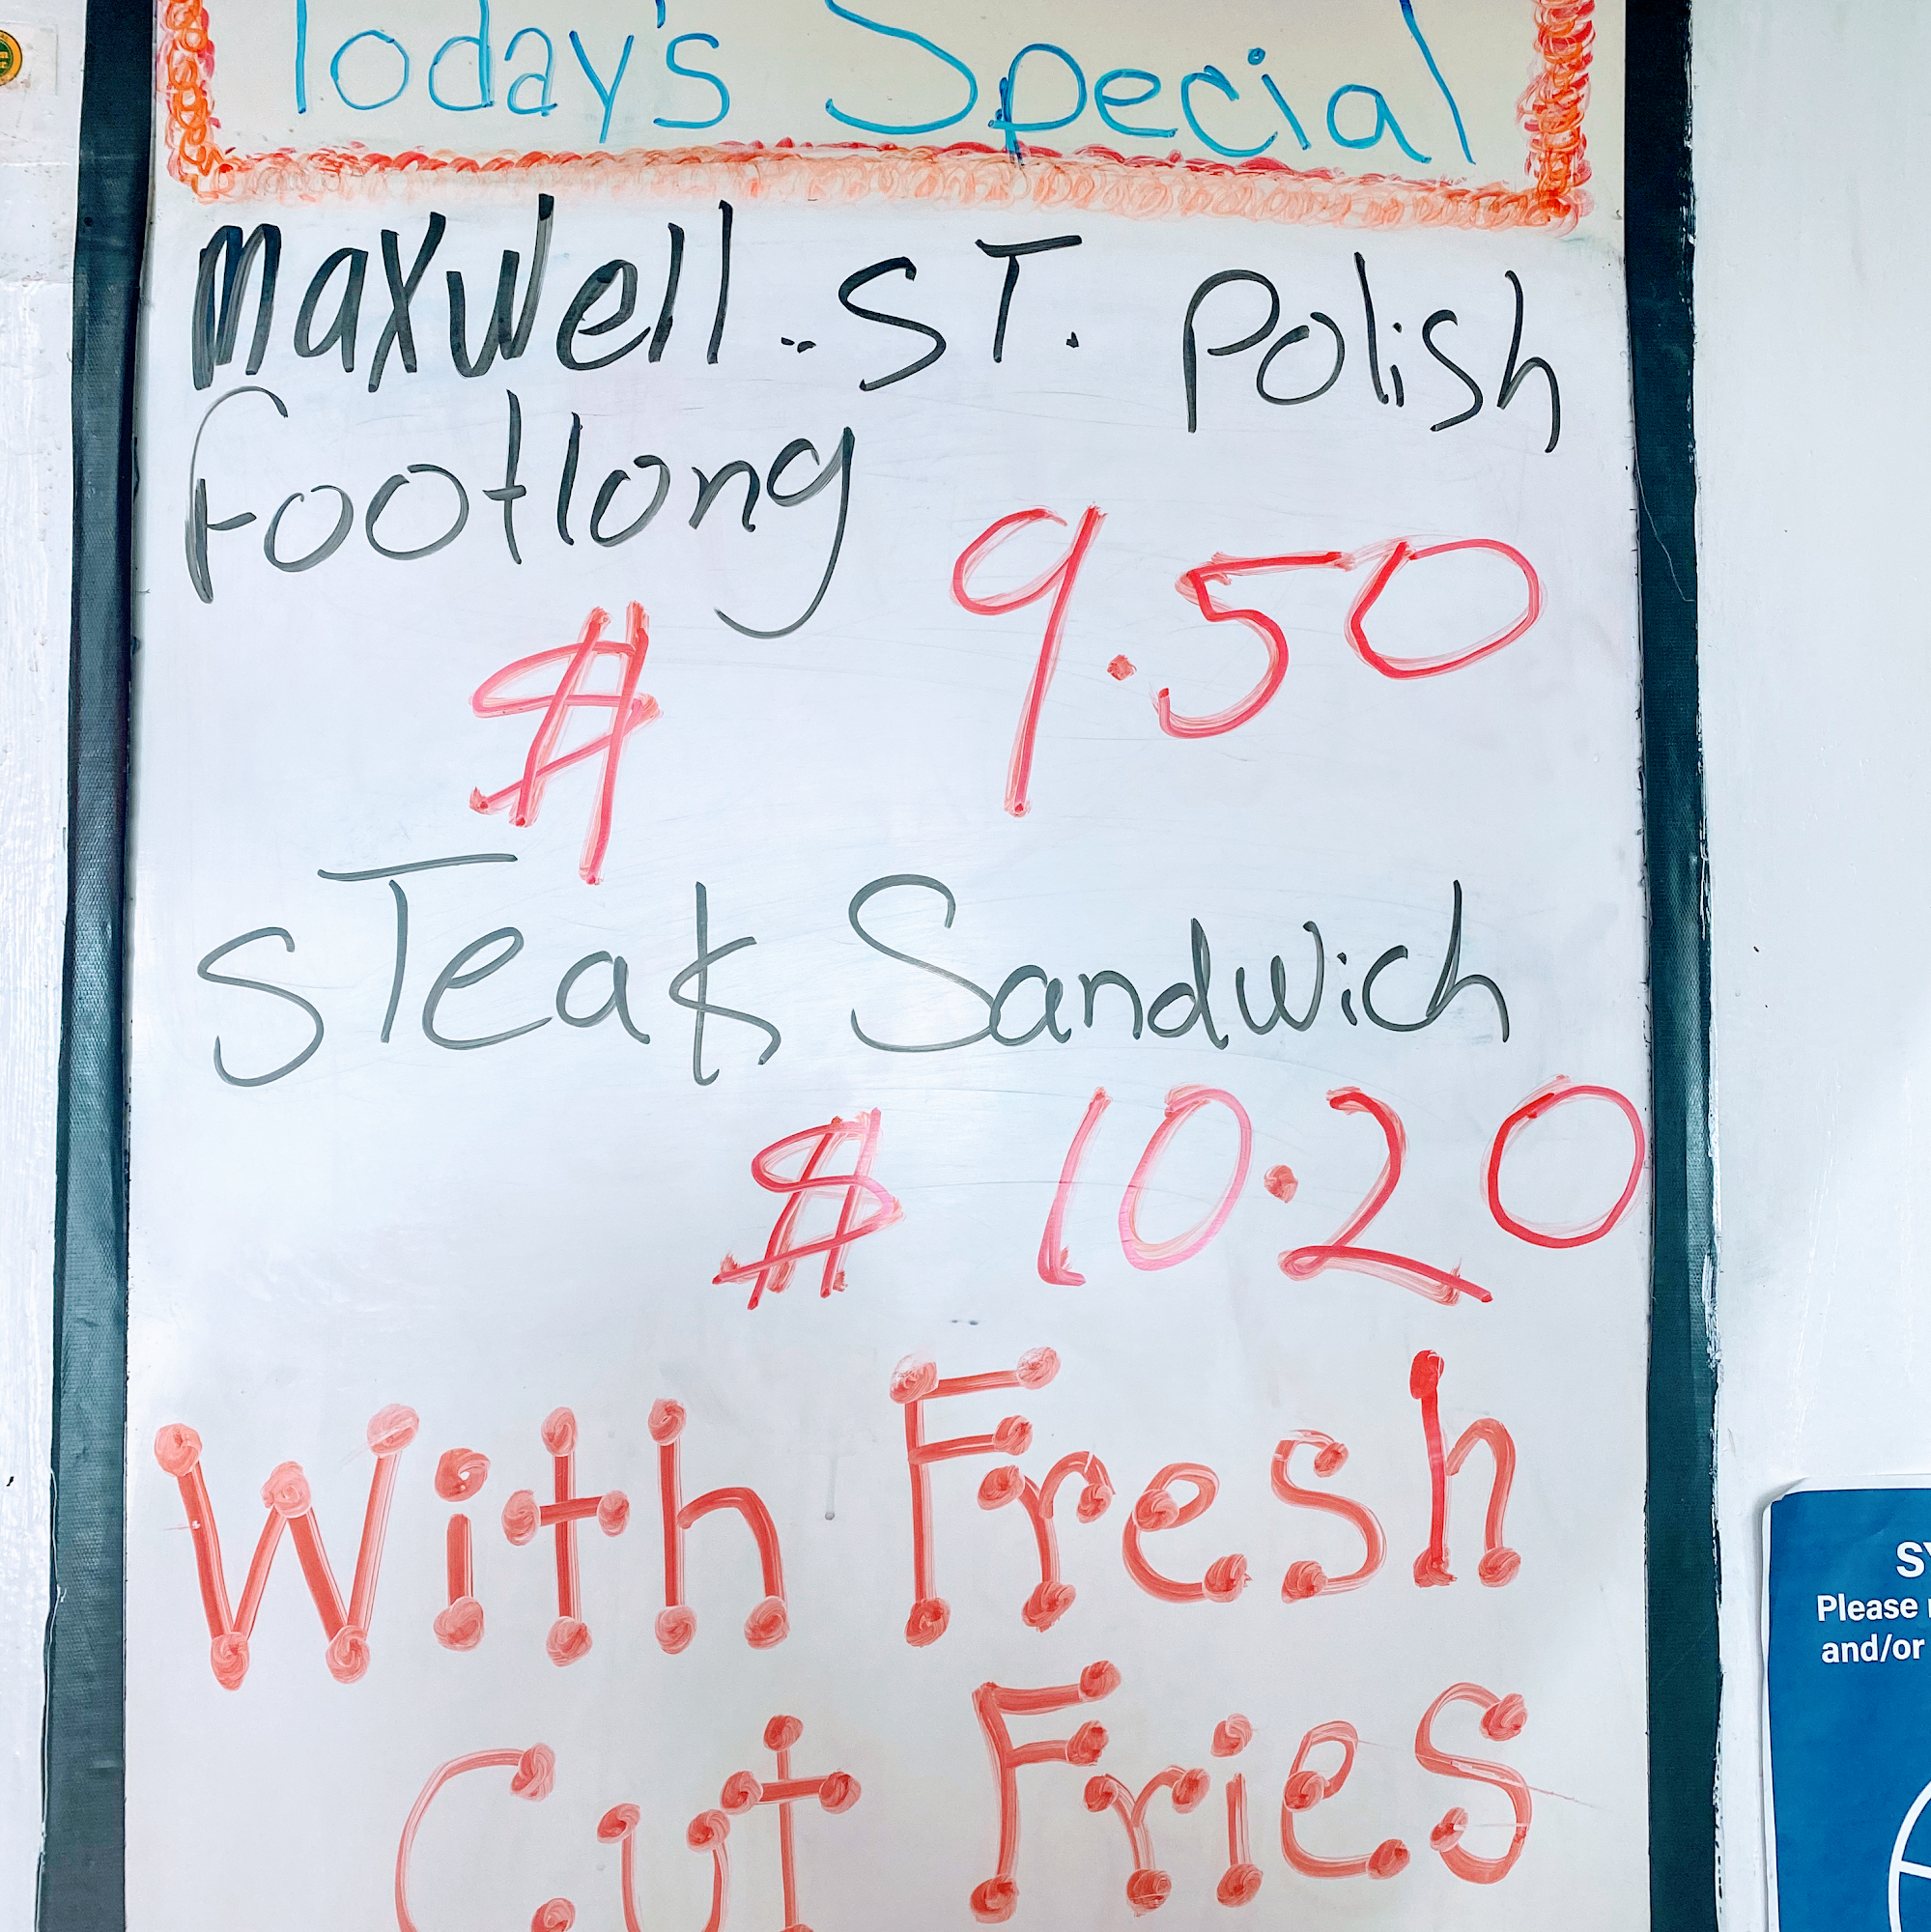 Today's Special
Maxwell.. ST. Polish
Footlong
$ 9.50
STeak Sandwich
$ 10.20
With Fresh
Cut Fries
Please
and/or